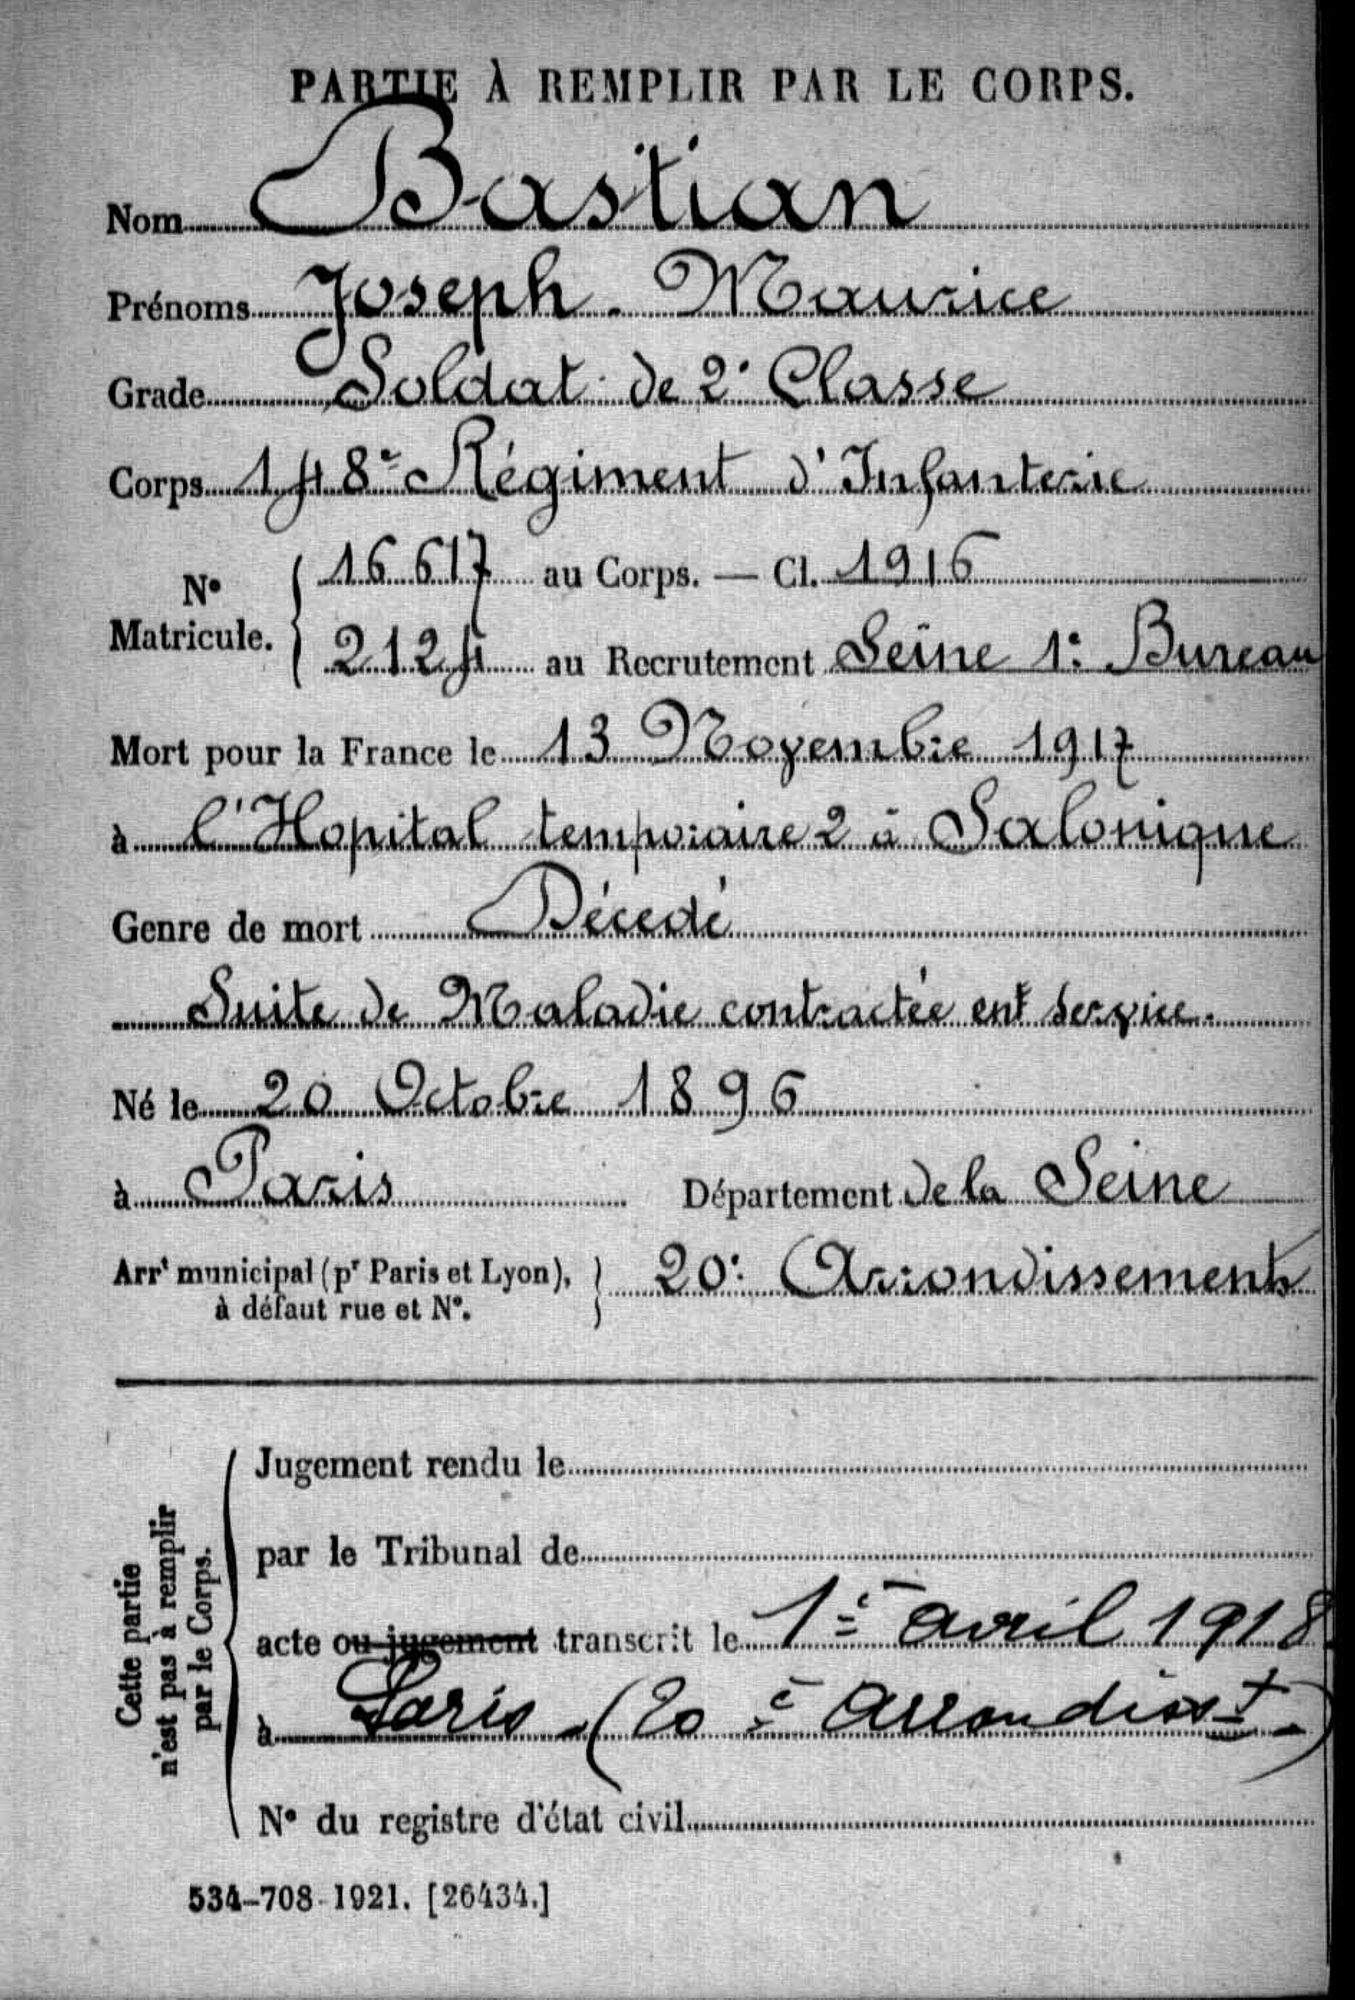 PARTIE À REMPLIR PAR LE CORPS.
Nom Bastian
Prénoms Joseph - Maurice
Grade Soldat de 2e Classe
Corps 148e Régiment d'Infanterie
No Matricule. { 16 617 au Corps. — Cl. 1916
2124 au Recrutement Seine 1e Bureau
Mort pour la France le 13 Novembre 1917
à l'Hopital temporaire 2 à Salonique
Genre de mort Décédé
Suite de Maladie contractée ent service.
Né le 20 Octobre 1896
à Paris Département de la Seine
Arrt municipal (pr Paris et Lyon), à défaut rue et No. } 20e Arrondissement
Cette partie n'est pas à remplir par le Corps.
Jugement rendu le
par le Tribunal de
acte ou jugement transcrit le 1er avril 1918
à Paris - (20e arrondisst)
No du registre d'état civil
534-708-1921. [26434.]